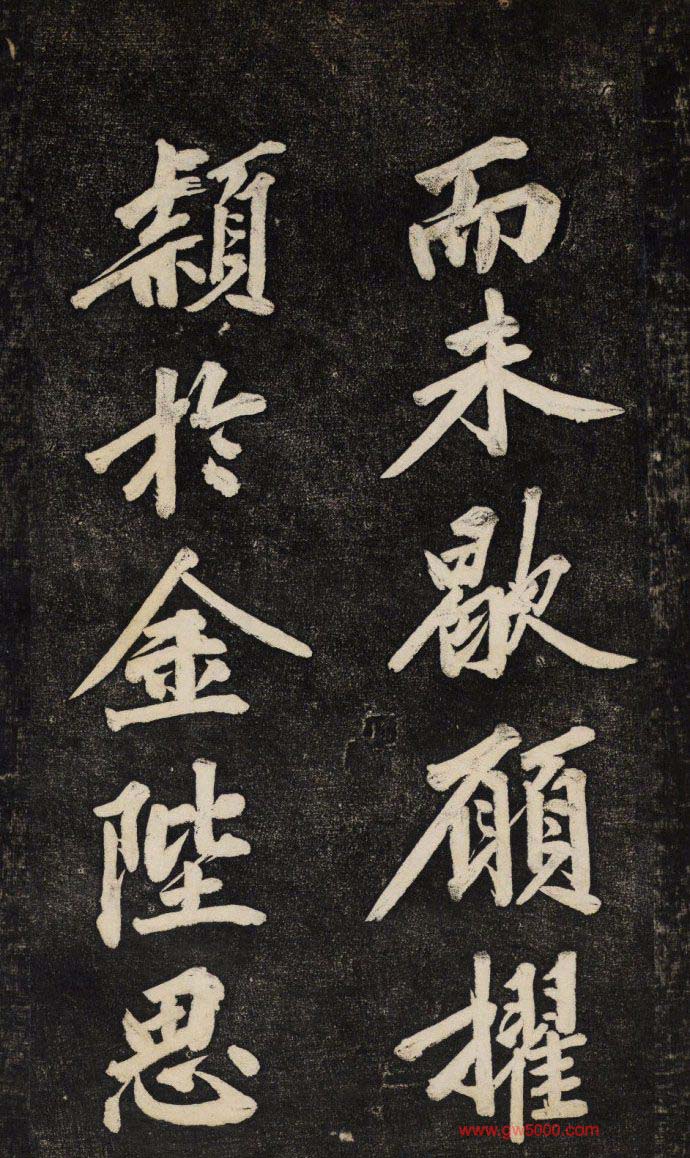 而未歇願擢
穎於金陛思
www.gw5000.com